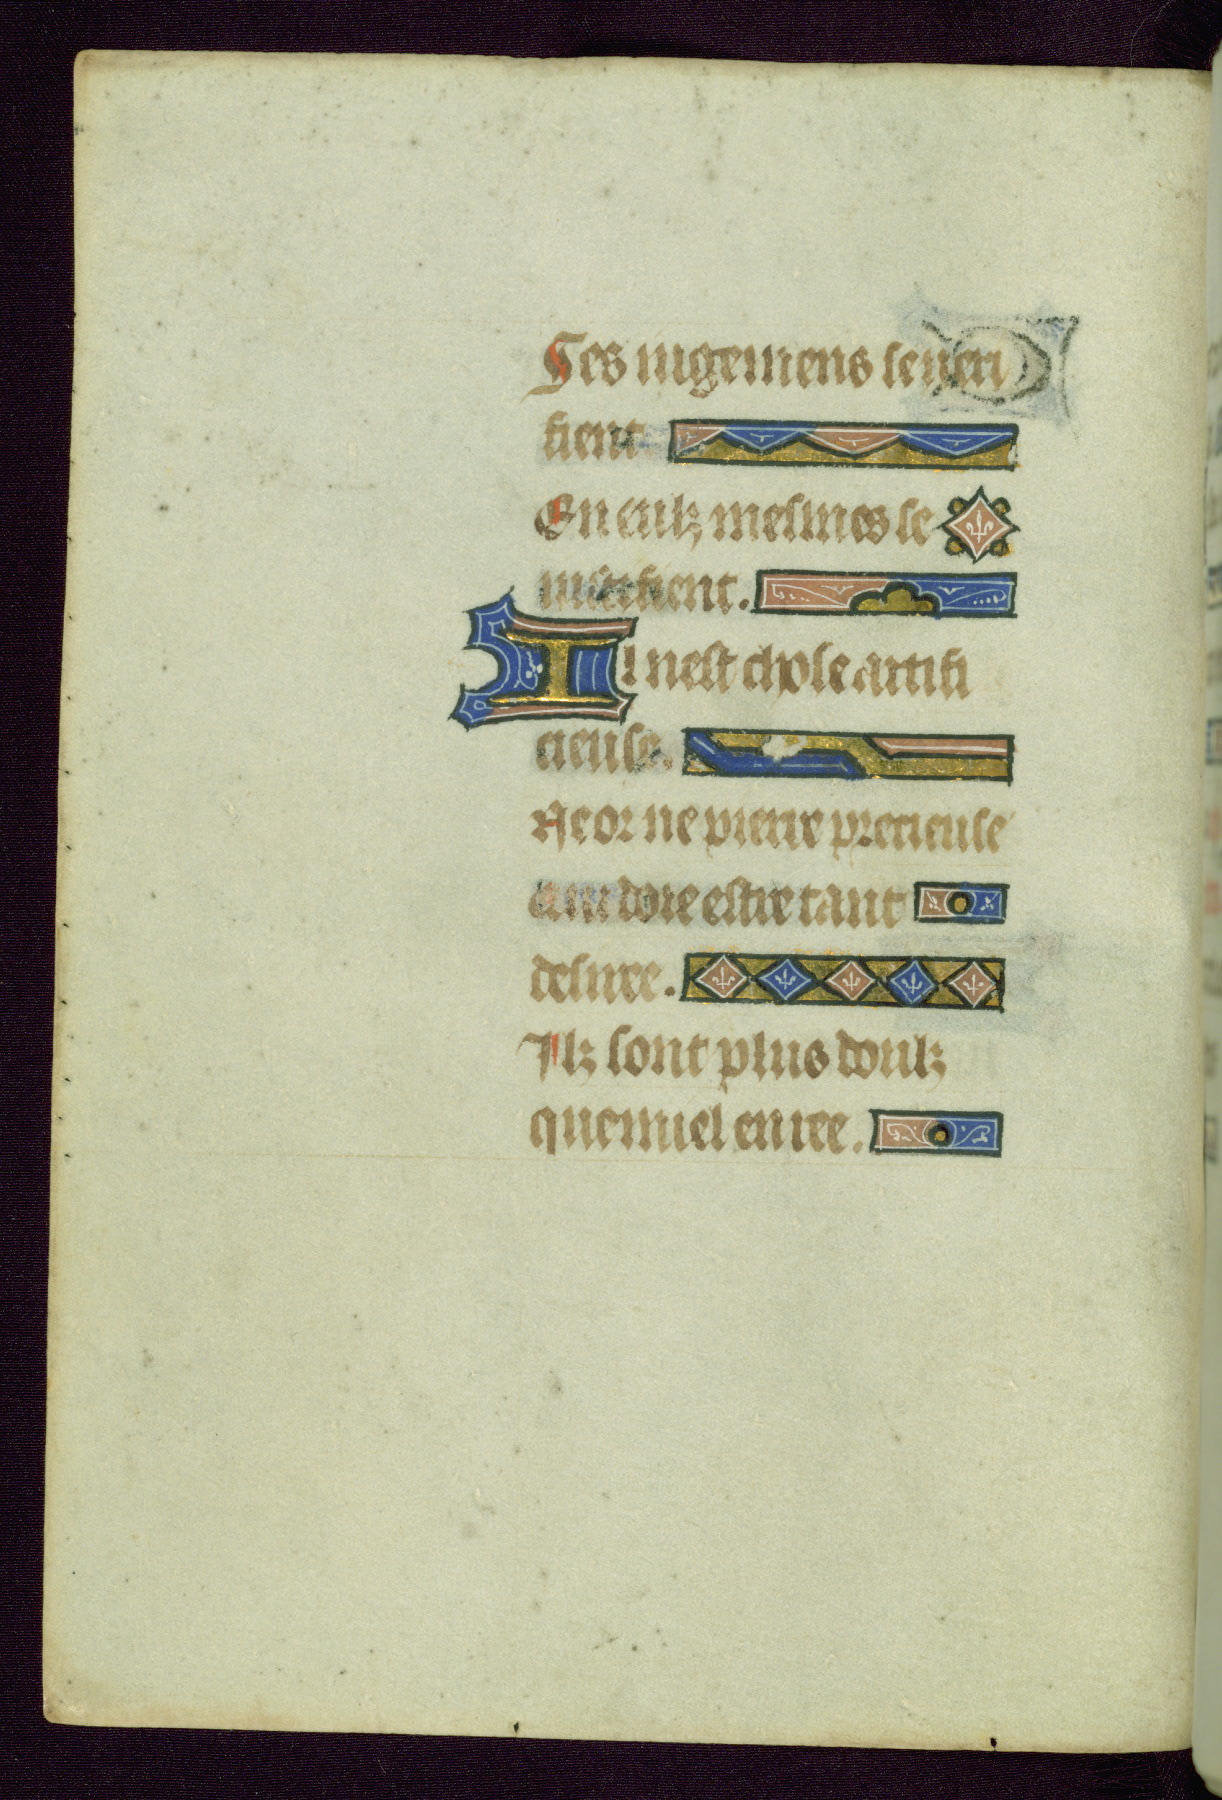 Ses iugemens se ueri
fient
En eulz mesmes se
iustifient.
Il nest chose artifi
cieuse.
Ne or ne pierre precieuse
qui doie estre tant
desiree.
Ilz sont plus doulz
que miel en ree.